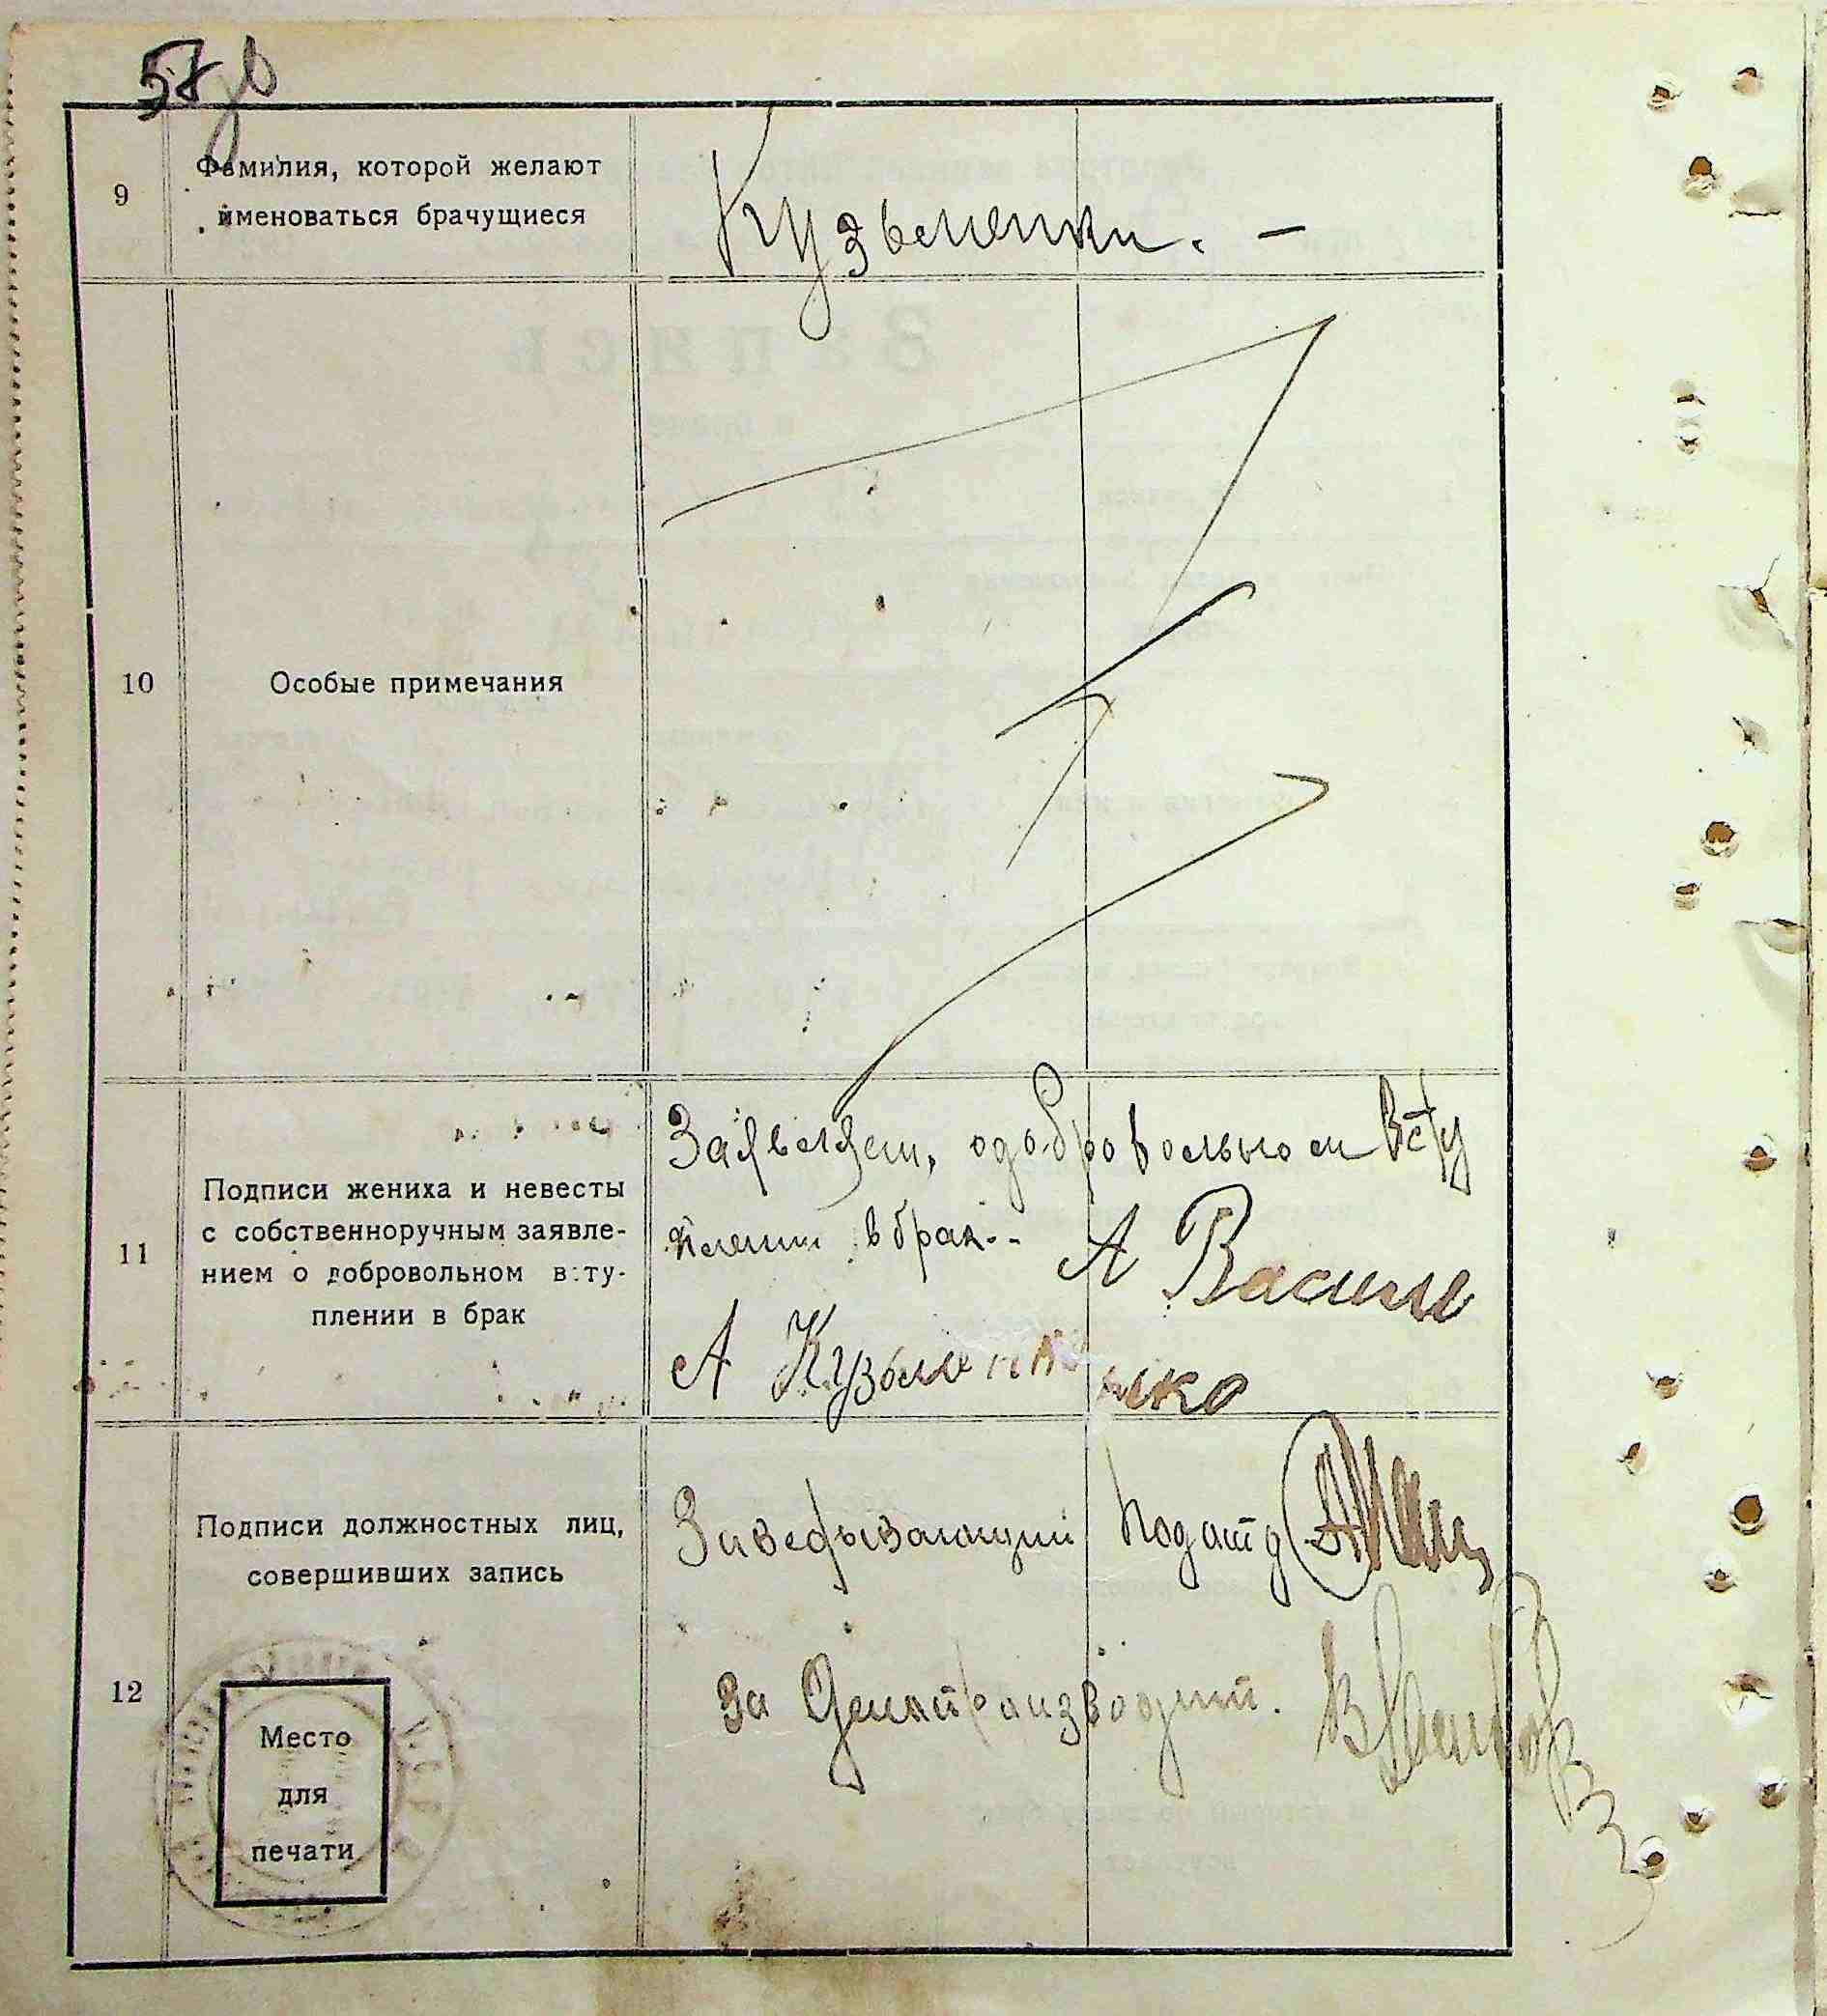 57 об
9
Фамилия, которой желают
именоваться брачущиеся
Кузьменки. —
10
Особые примечания
11
Подписи жениха и невесты
с собственноручным заявле-
нием о добровольном всту-
плении в брак
Заявляем, одобровольном всту
плении в брак..
А Васил
А Кузьменко
12
Подписи должностных лиц,
совершивших запись
Заведывающий Подотд
За Делопроизводит.
Место
для
печати